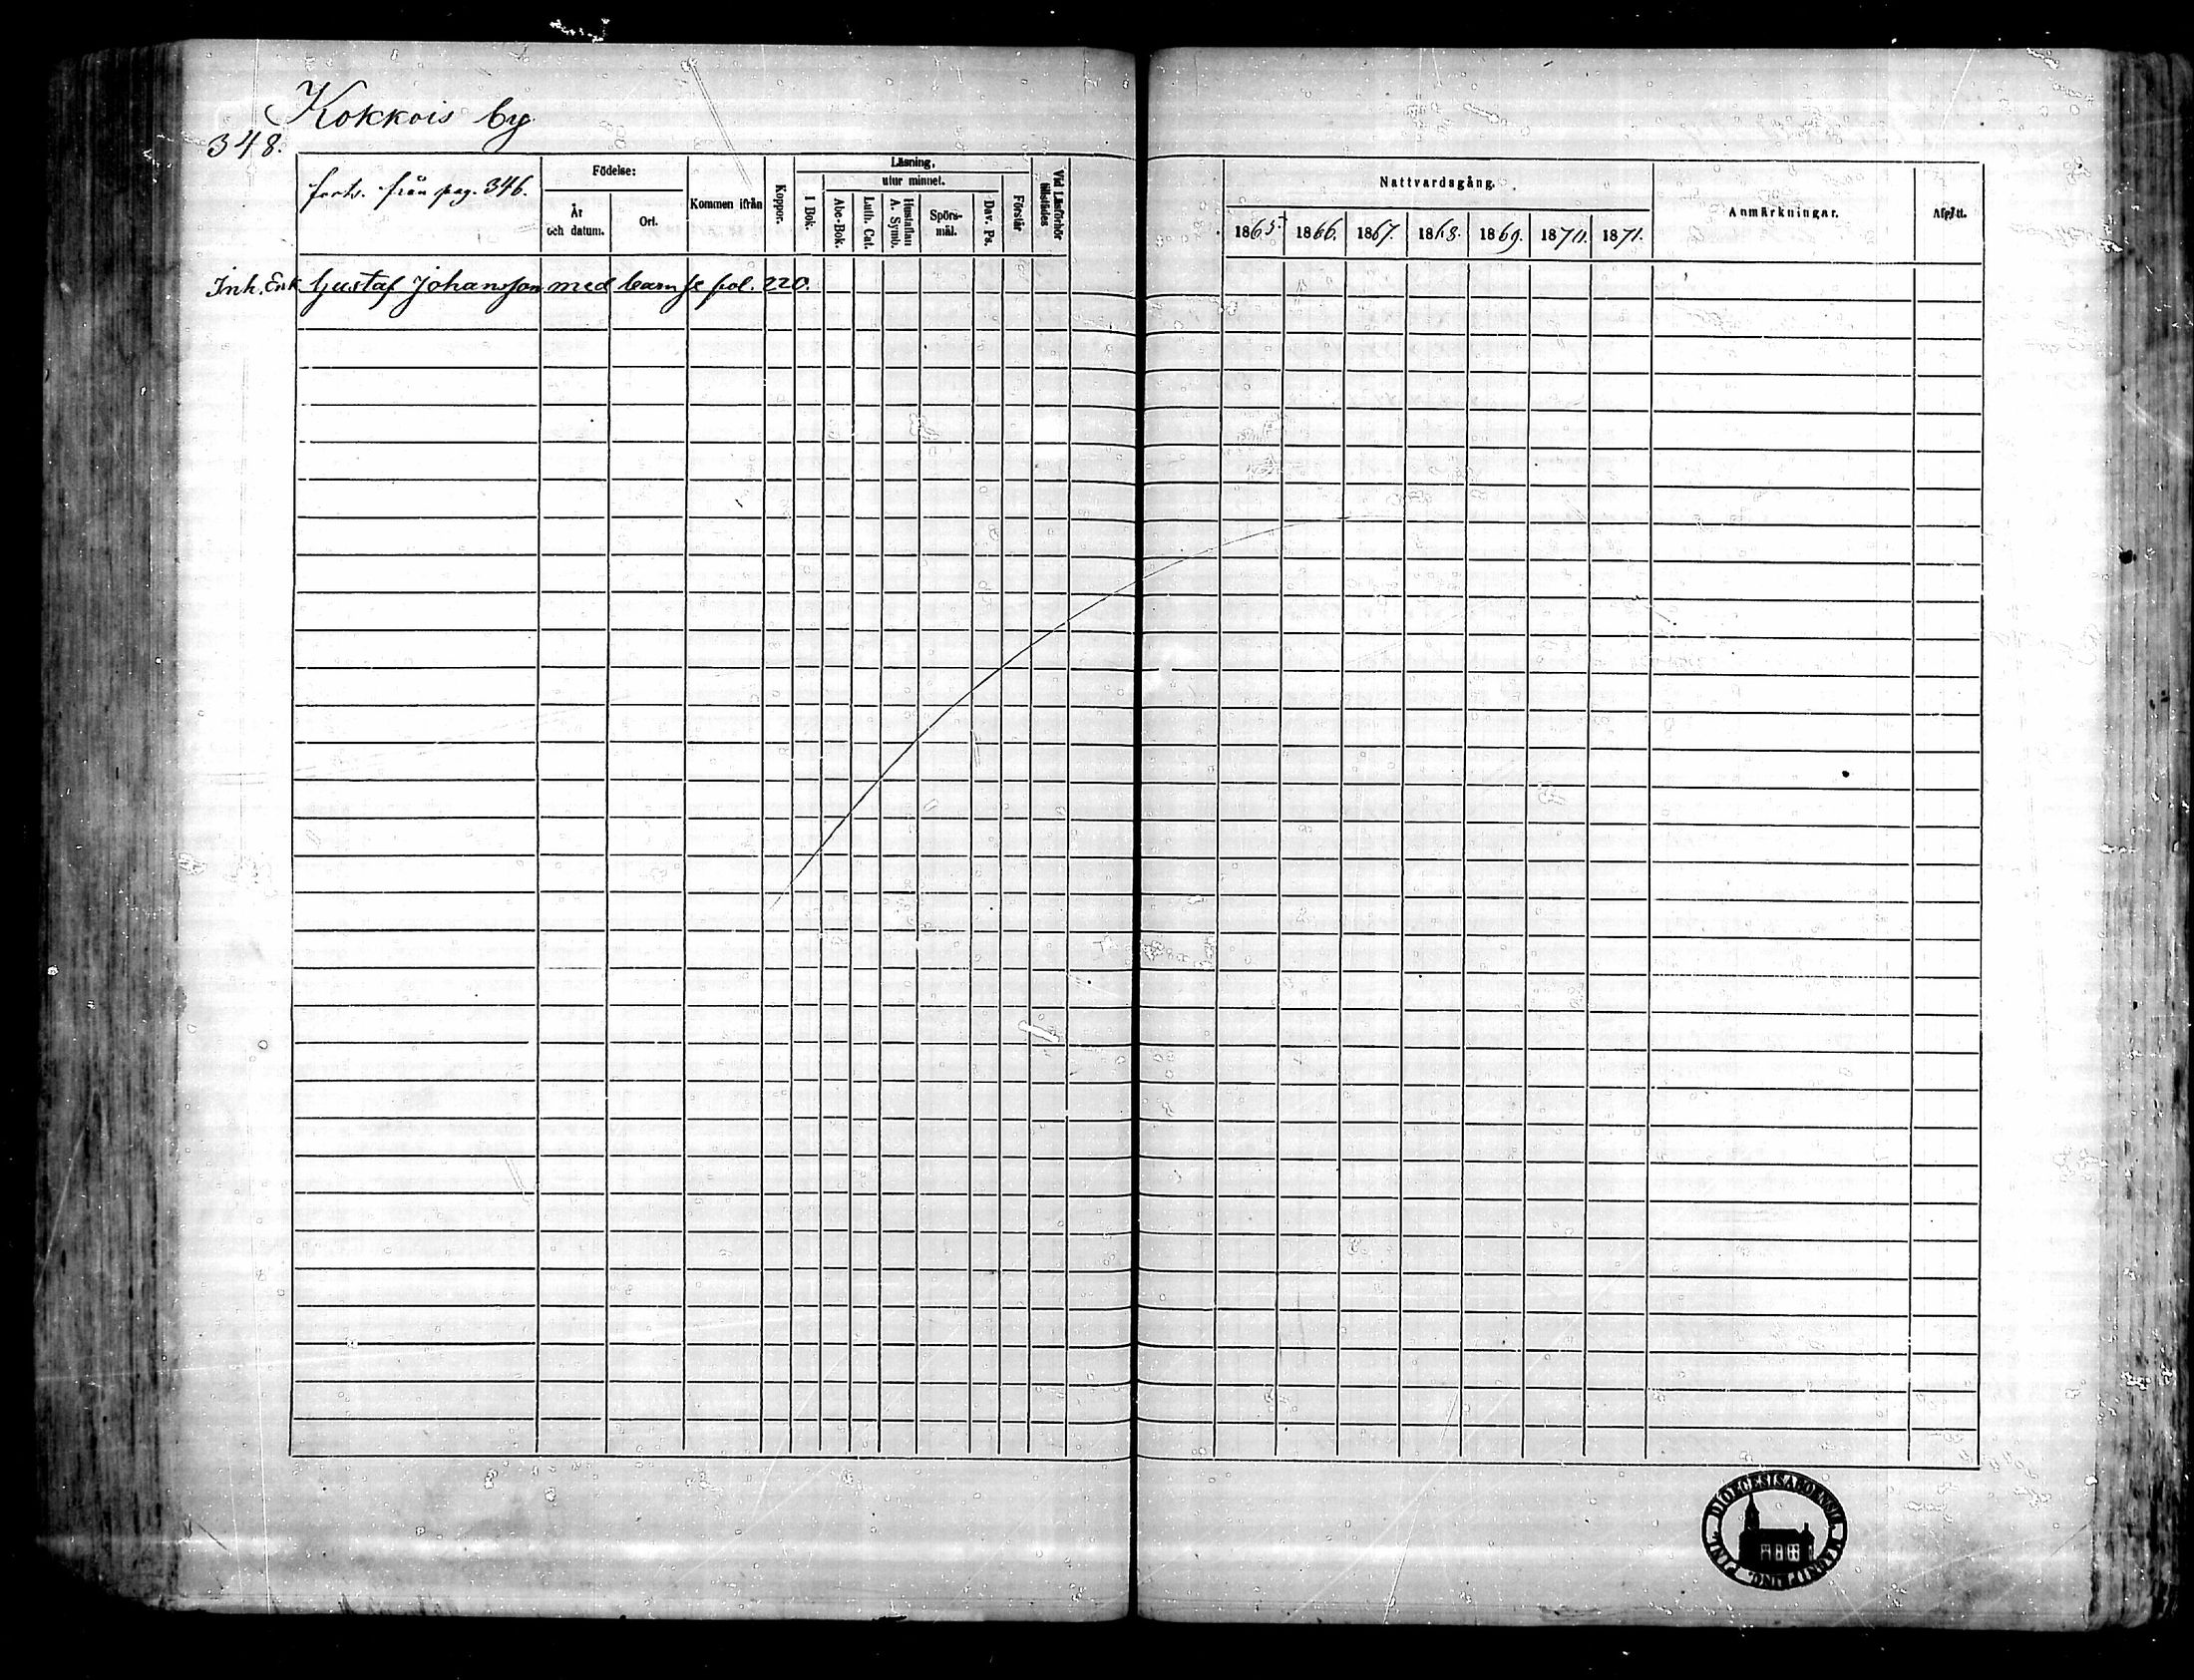 Kokkois by
348.
forts. från pag. 346.
Födelse:
År och datum.
Ort.
Kommen ifrån
Koppor.
Läsning,
utur minnet.
I Bok.
Abc-Bok.
Luth. Cat.
Hustaflan A. Symb.
Spörs-mål.
Dav. Ps.
Förstår
Vid Läsförhör tillstädes
Nattvardsgång.
1865. 1866. 1867. 1868. 1869. 1870. 1871.
Anmärkningar.
Afgått.
Inh. Enk. Gustaf Johansson med barn se fol. 220.
DIOECESIS ABOENSIS
FINL.